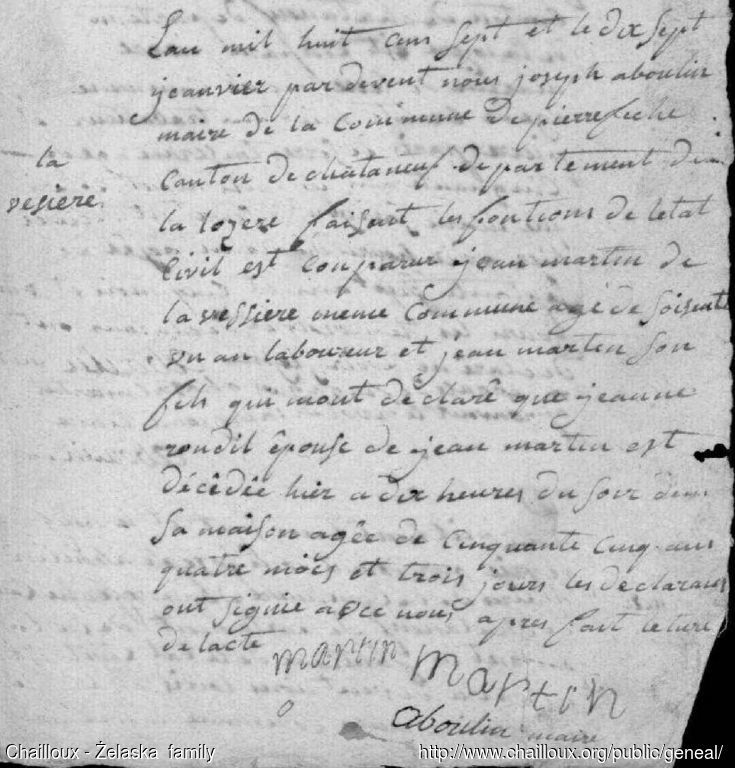 Lan mil huit cens sept et le dix sept
jeanvier par devent nous joseph aboulin
maire de la Commune de pierrefiche
la
vesiere
Canton de chataneuf departement de
la lozere faisant les fontions de letat
Civil est Conparur jean martin de
la vessiere meme Commune agé de soisente
un an laboureur et jean martin son
fils qui mont déclaré que jeanne
rondil épouse de jean martin est
décédée hier a dix heures du soir dens
sa maison agée de Cinquante Cinq ans
quatre mois et trois jours les declarans
ont signie avec nous apres fait leture
de lacte
martin martin
aboulin maire
Chailloux - Żelaska family
http://www.chailloux.org/public/geneal/